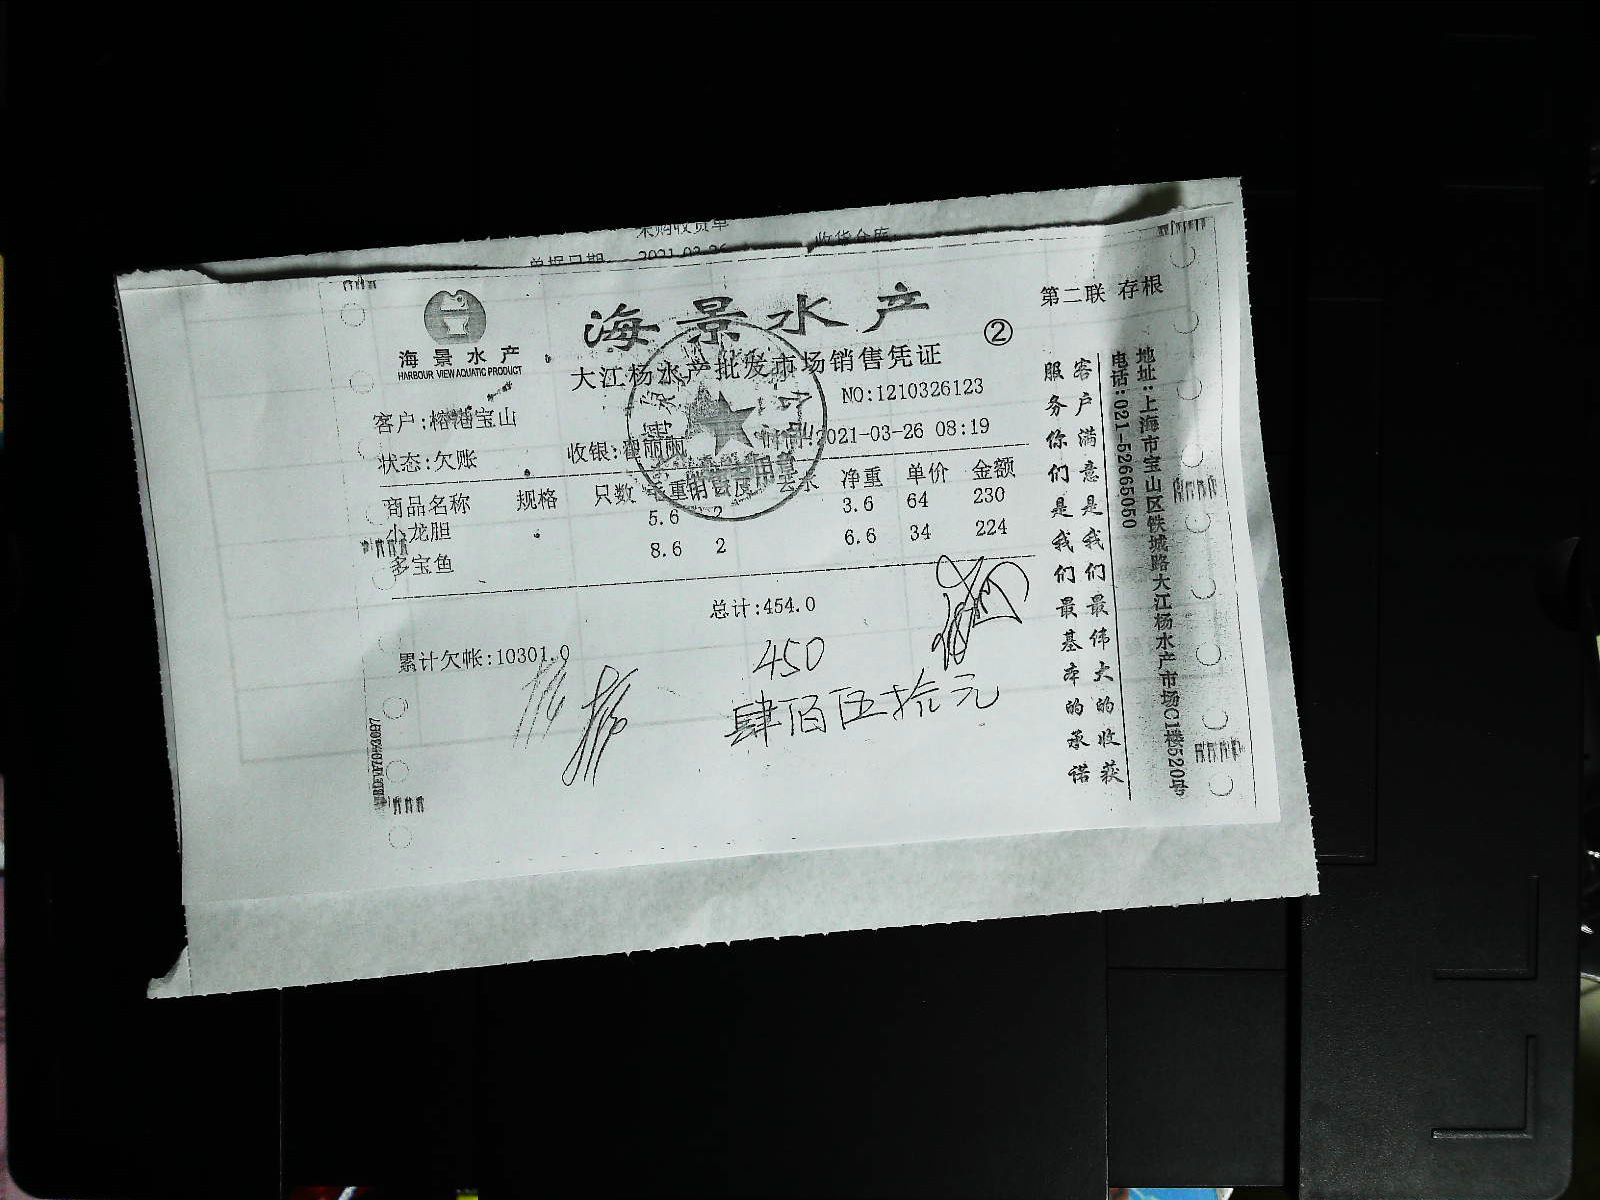 采购收货单
单据日期 2021-03-26 收货仓库
第二联 存根
海景水产
海景水产
HARBOUR VIEW AQUATIC PRODUCT
②
大江杨水产批发市场销售凭证
NO:1210326123
客户:榕港宝山
状态:欠账 收银:翟丽丽 时间:2021-03-26 08:19
商品名称 规格 只数 毛重 去水 净重 单价 金额
小龙胆 5.6 2 3.6 64 230
多宝鱼 8.6 2 6.6 34 224
总计:454.0
累计欠帐:10301.0
450
肆佰伍拾元
客户满意是我们最伟大的收获
服务你们是我们最基本的承诺
地址:上海市宝山区铁城路大江杨水产市场C1楼520号
电话:021-52665050